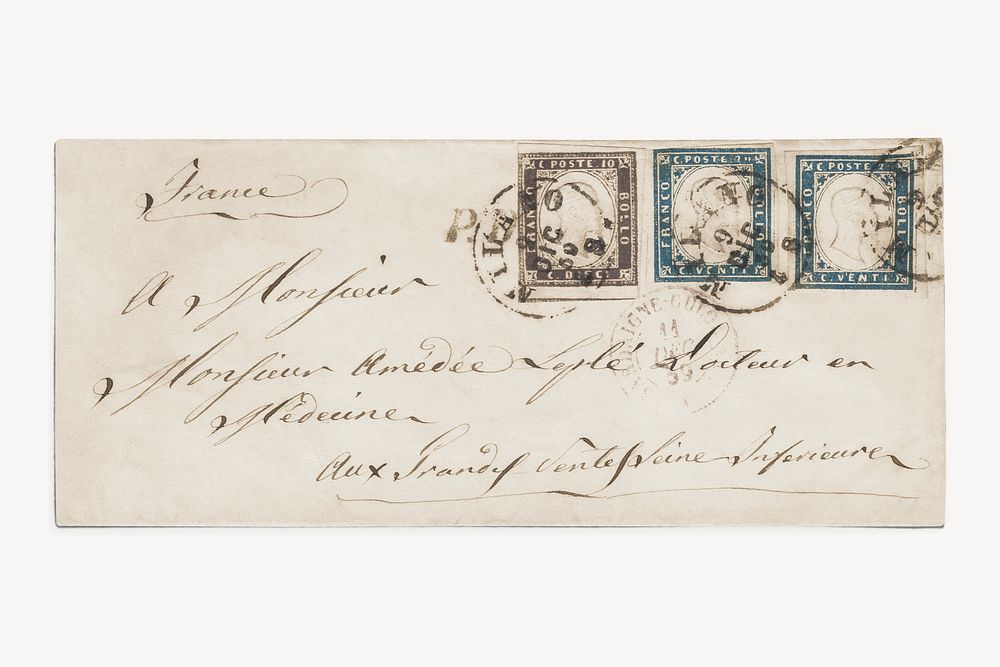 France
C. POSTE 10
FRANCO
BOLLO
C. POSTE 2
FRANCO
BOLLO
C. VENTI
C. POSTE 2
FRANCO
BOLLO
C. VENTI
MILANO
9
DIC
59
11
DEC
59
A Monsieur
Monsieur Amédée Leplé Docteur en
Médecine
Aux Grandes Ventes Seine Inferieure